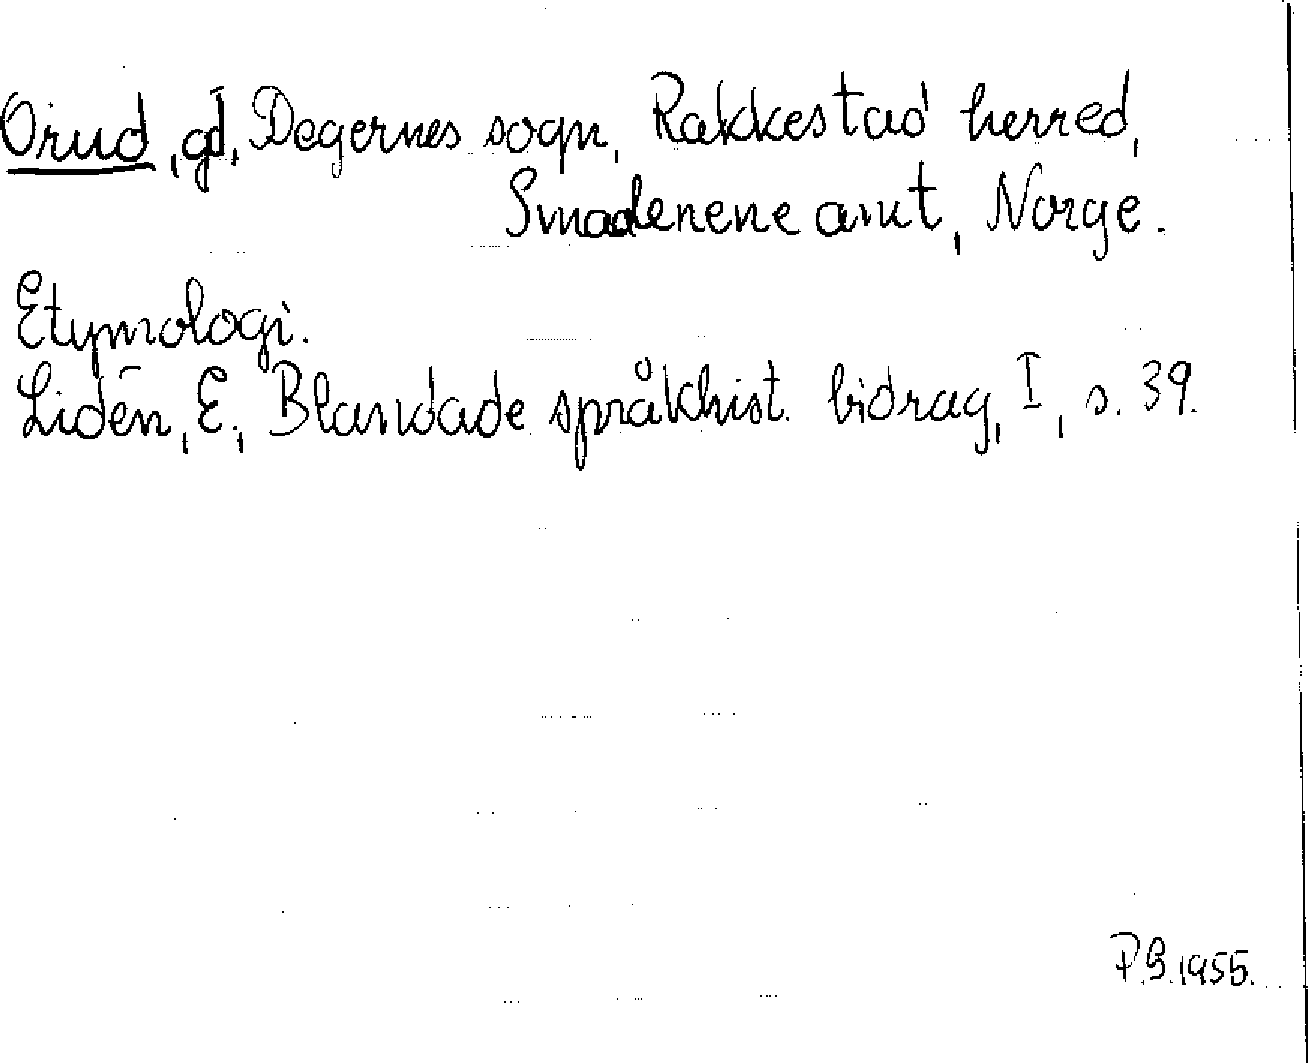 Orud, gd, Degernes sogn, Rakkestad herred,
Smaalenene amt, Norge.
Etymologi.
Lidén, E., Blandade språkhist. bidrag, I, s. 39.
P.G. 1955.